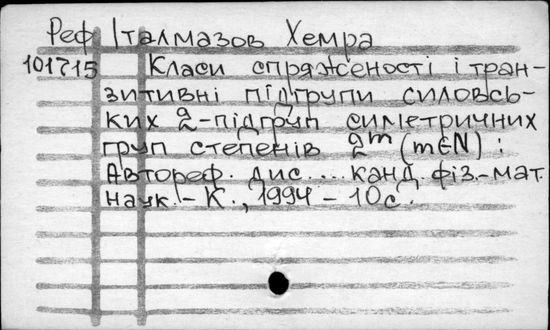 Реф Італмазов Хемра
101715 Класи спряженості і тран-
зитивні підгрупи силовсь-
ких 2-підгруп симетричних
груп степенів 2ᵐ (m∈N) :
Автореф. дис. ... канд. фіз.-мат.
наук. – К., 1994 – 10с.